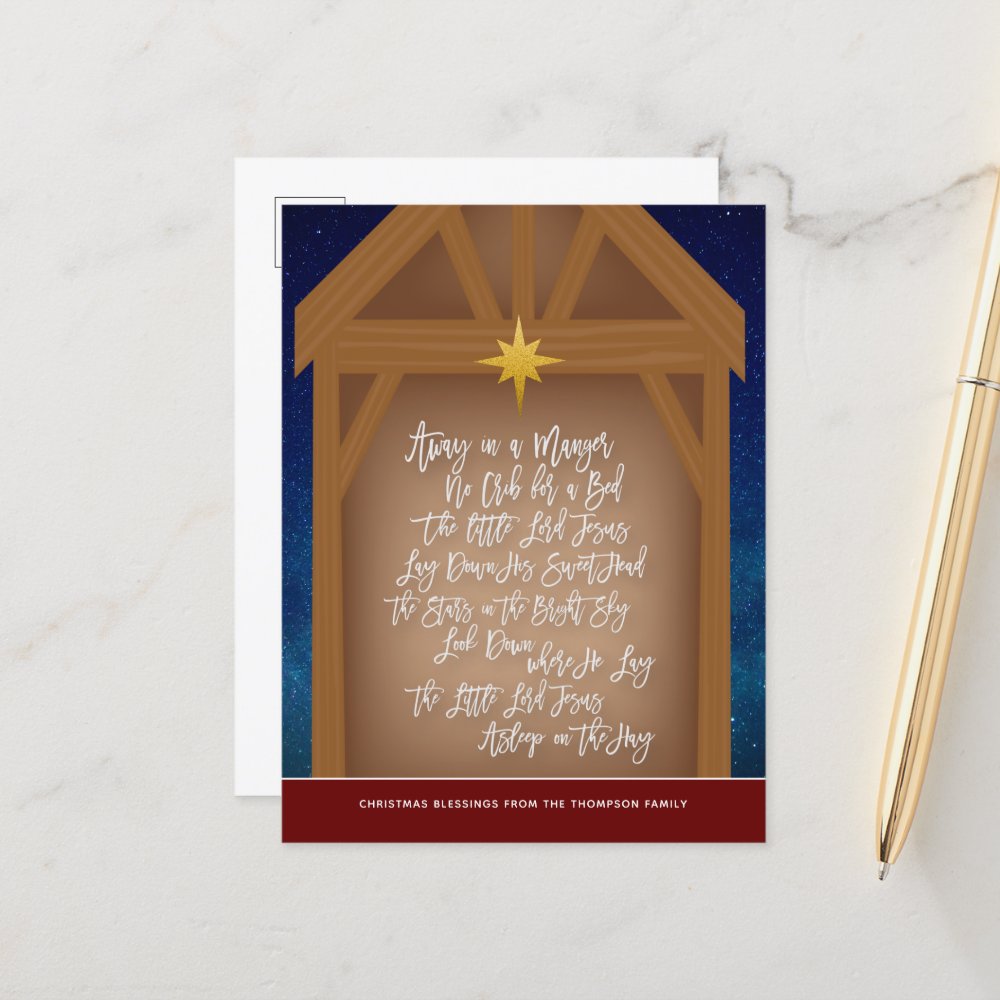 Away in a Manger
No Crib for a Bed
The little Lord Jesus
Lay Down His Sweet Head
the Stars in the Bright Sky
Look Down
where He Lay
the Little Lord Jesus
Asleep on the Hay
CHRISTMAS BLESSINGS FROM THE THOMPSON FAMILY